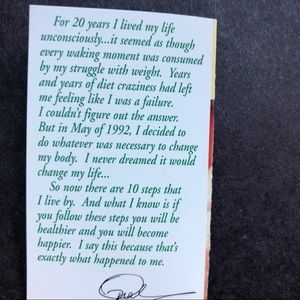 For 20 years I lived my life
unconsciously...it seemed as though
every waking moment was consumed
by my struggle with weight. Years
and years of diet craziness had left
me feeling like I was a failure.
I couldn't figure out the answer.
But in May of 1992, I decided to
do whatever was necessary to change
my body. I never dreamed it would
change my life...
So now there are 10 steps that
I live by. And what I know is if
you follow these steps you will be
healthier and you will become
happier. I say this because that's
exactly what happened to me.